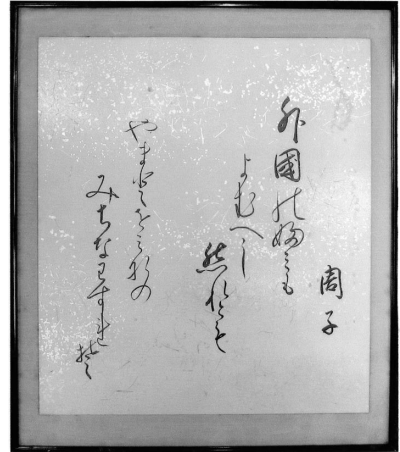 周子
外國の婦みも
よむへし
然れとも
やまとをみなの
みちなわすれそ